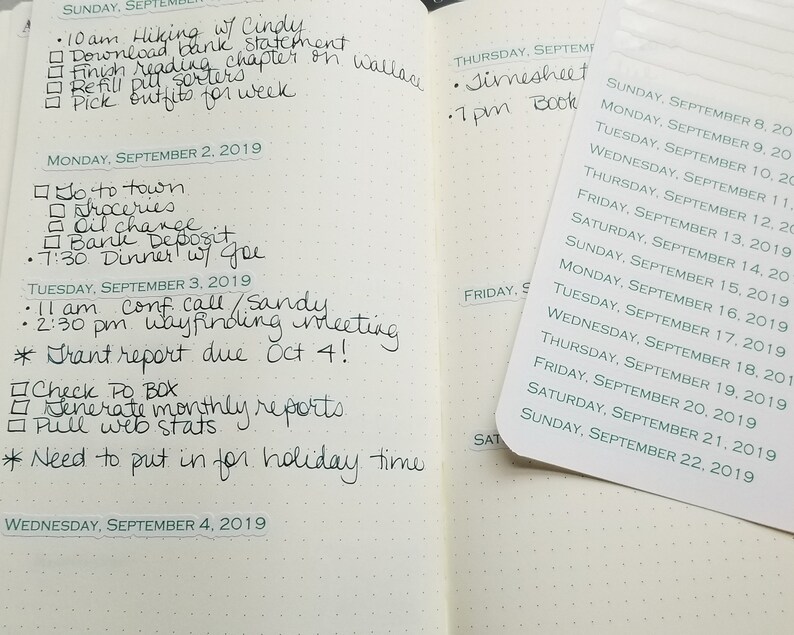 SUNDAY, SEPTEMBER
• 10 am Hiking w/ Cindy
☐ Download bank statement
☐ Finish reading chapter on Wallace
☐ Refill pill sorters
☐ Pick outfits for week
MONDAY, SEPTEMBER 2, 2019
☐ Go to town
☐ Groceries
☐ Oil change
☐ Bank Deposit
• 7:30 Dinner w/ Joe
TUESDAY, SEPTEMBER 3, 2019
• 11 am conf. call / Sandy
• 2:30 pm wayfinding meeting
* Grant report due Oct 4!
☐ Check PO BOX
☐ Generate monthly reports
☐ Pull web stats
* Need to put in for holiday time
WEDNESDAY, SEPTEMBER 4, 2019
THURSDAY, SEPTEM
• Timesheet
• 7 pm Book
FRIDAY, S
SAT
SUNDAY, SEPTEMBER 8, 20
MONDAY, SEPTEMBER 9, 20
TUESDAY, SEPTEMBER 10, 20
WEDNESDAY, SEPTEMBER 11,
THURSDAY, SEPTEMBER 12, 2
FRIDAY, SEPTEMBER 13, 2019
SATURDAY, SEPTEMBER 14, 20
SUNDAY, SEPTEMBER 15, 2019
MONDAY, SEPTEMBER 16, 2019
TUESDAY, SEPTEMBER 17, 2019
WEDNESDAY, SEPTEMBER 18, 201
THURSDAY, SEPTEMBER 19, 2019
FRIDAY, SEPTEMBER 20, 2019
SATURDAY, SEPTEMBER 21, 2019
SUNDAY, SEPTEMBER 22, 2019